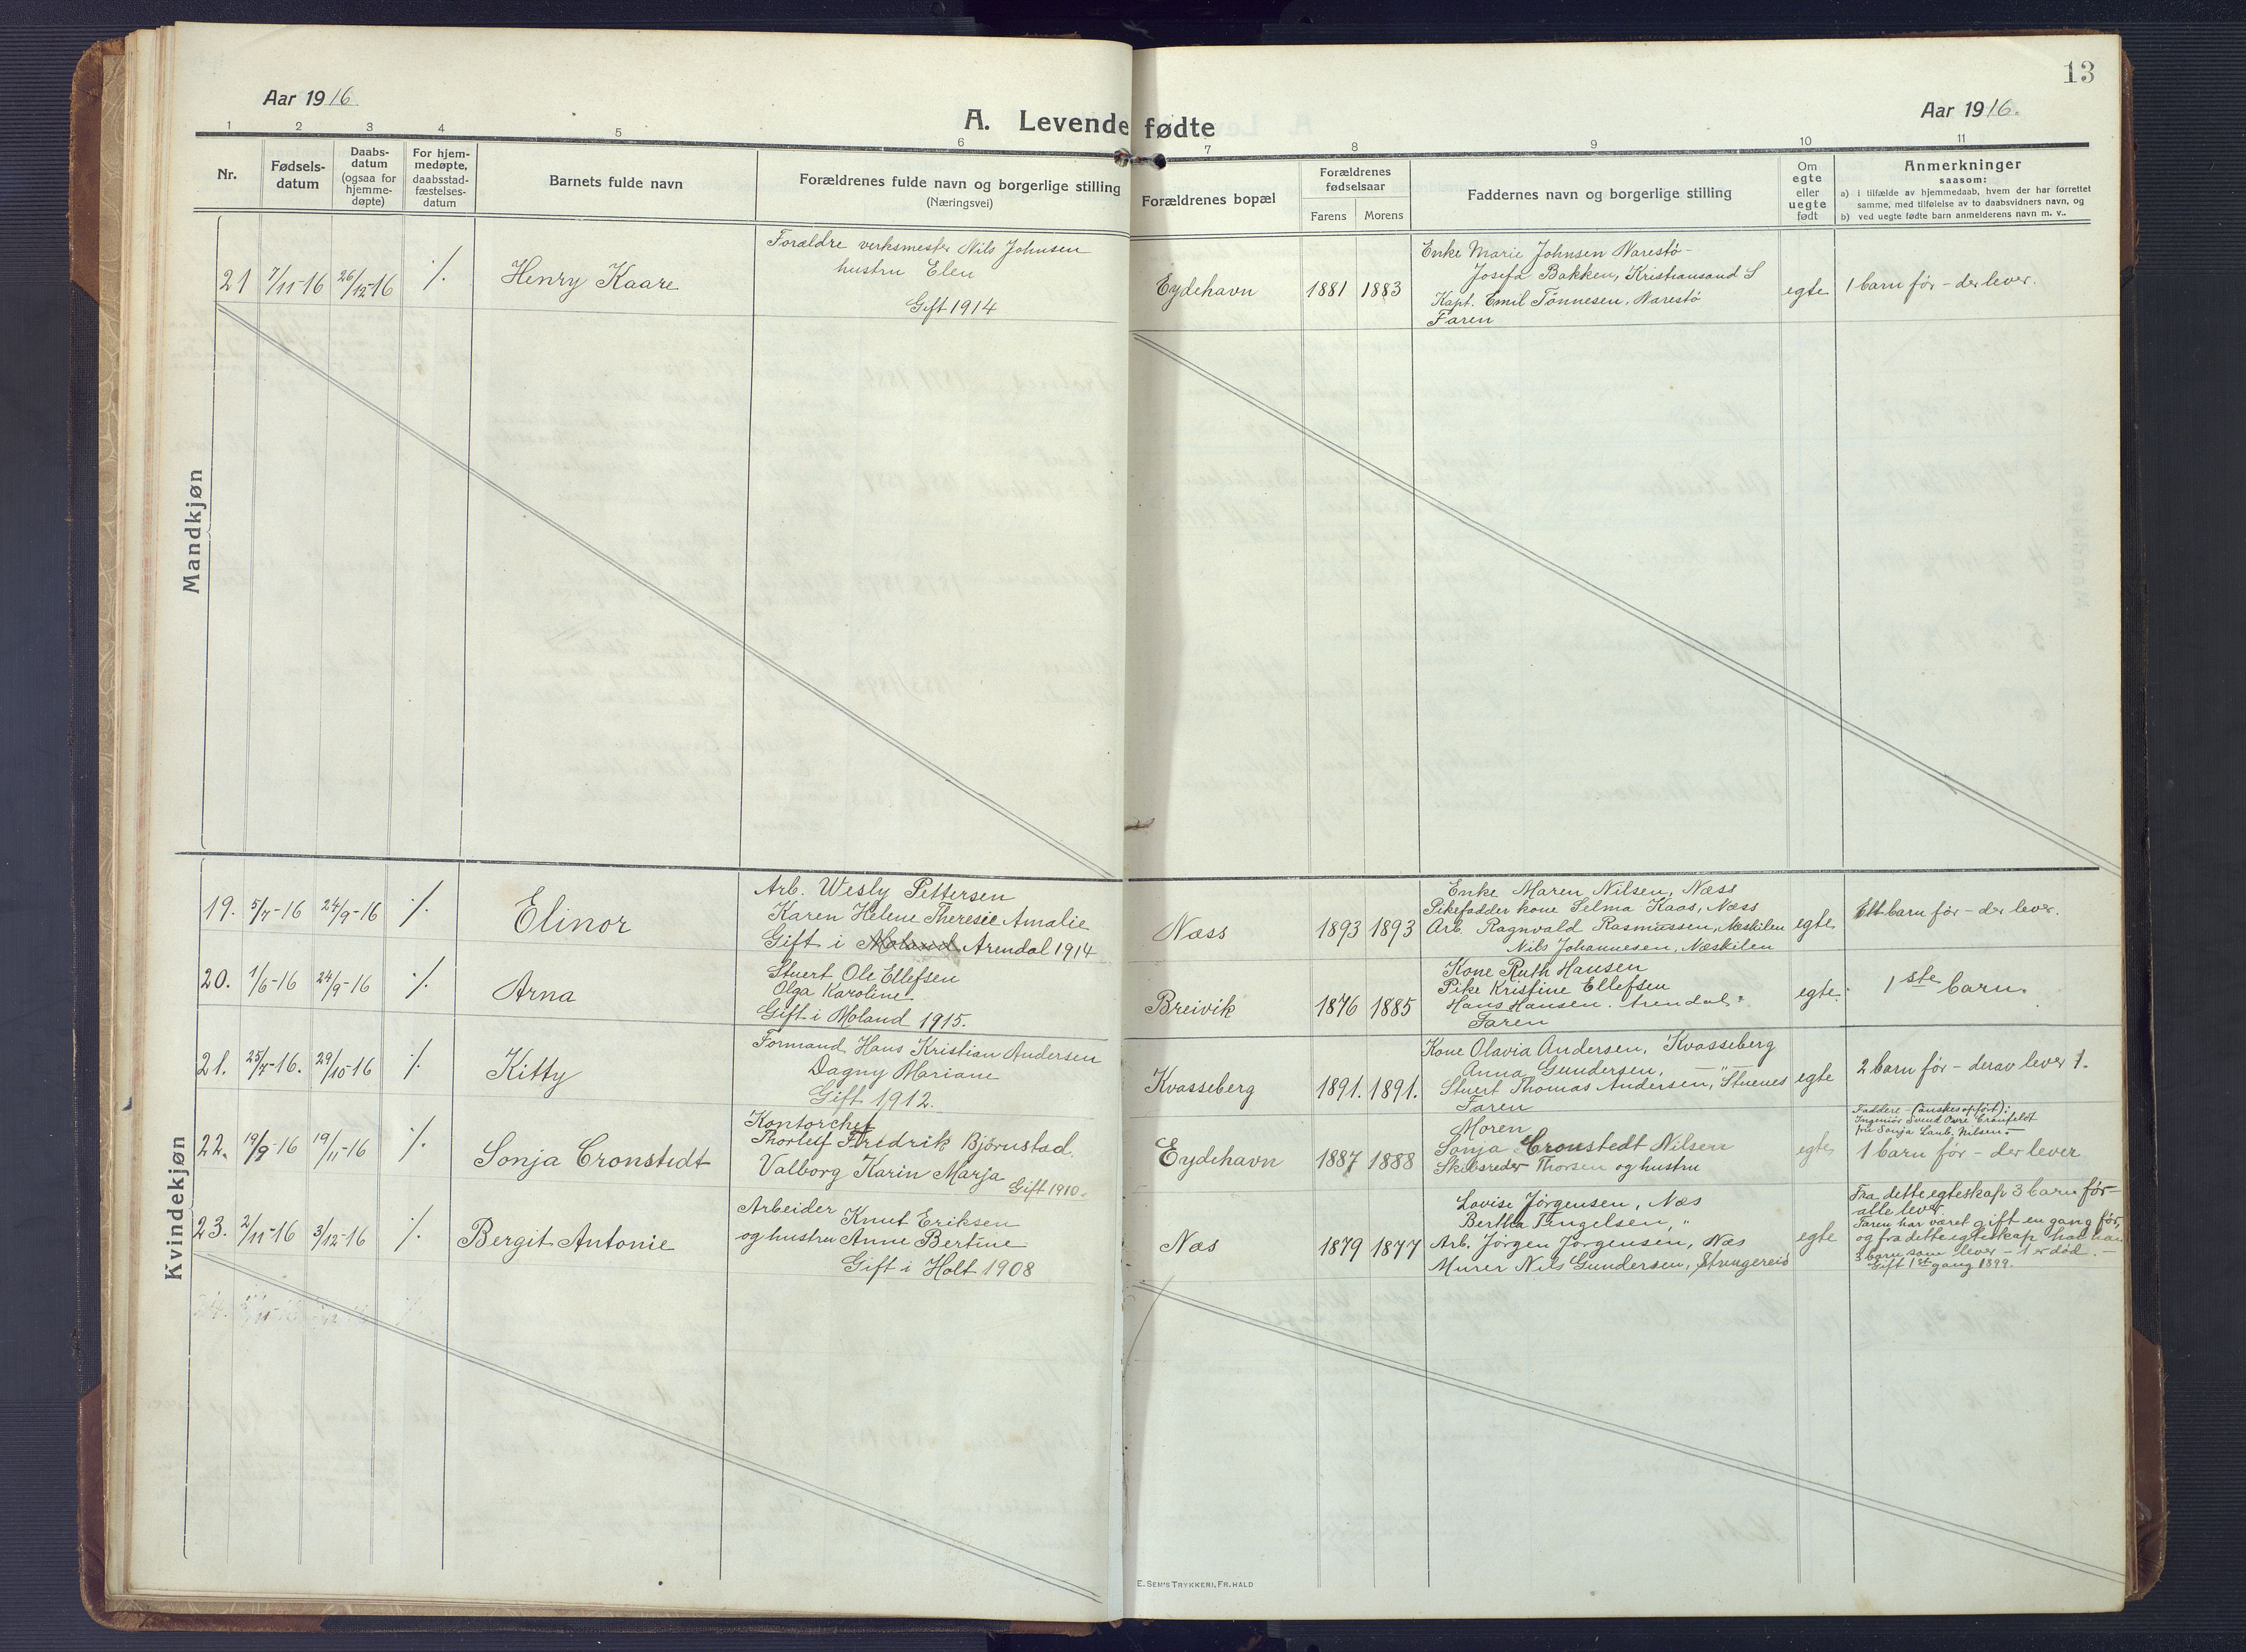 13
Aar 1916
Aar 1916.
A. Levende fødte
1 2 3 4 5 6 7 8 9 10 11
Nr.
Fødsels-
datum
Daabs-
datum
(ogsaa for
hjemme-
døpte)
For hjem-
medøpte,
daabsstad-
fæstelses-
datum
Barnets fulde navn
Forældrenes fulde navn og borgerlige stilling
(Næringsvei)
Forældrenes bopæl
Forældrenes
fødselsaar
Farens Morens
Faddernes navn og borgerlige stilling
Om
egte
eller
uegte
født
Anmerkninger
saasom:
a) i tilfælde av hjemmedaab, hvem der har forrettet
samme, med tilføielse av to daabsvidners navn, og
b) ved uegte fødte barn anmelderens navn m. v..
Mandkjøn
21 7/11-16 26/12-16 ./. Henry Kaare
Forældre verksmester Nils Johnsen
hustru Elen
Gift 1914
Eydehavn 1881 1883
Enke Marie Johnsen Narestø-
Josefa Bakken, Kristiansand S
Kapt. Emil Tønnesen, Narestø
Faren
egte
1 barn før - der lever.
Kvindekjøn
19. 5/7-16 24/9-16 ./. Elinor
Arb. Wesly Pettersen
Karen Helene Theresie Amalie
Gift i Moland Arendal 1914
Næss 1893 1893
Enke Maren Nilsen, Næss
Pikefadder kone Selma Kaas, Næss
Arb. Ragnvald Rasmussen, Næskilen
Nils Johannesen, Næskilen
egte
Ett barn før - der lever.
20. 1/6-16 24/9-16 ./. Arna
Stuert Ole Ellefsen
Olga Karoline
Gift i Moland 1915.
Breivik 1876 1885
Kone Ruth Hansen
Pike Kristine Ellefsen
Hans Hansen. Arendal
Faren
egte.
1ste barn.
21. 25/7-16. 29/10-16 ./. Kitty
Formand Hans Kristian Andersen
Dagny Mariane
Gift 1912.
Kvasseberg 1891. 1891.
Kone Olavia Andersen, Kvasseberg
Anna Gundersen, —"—
Stuert Thomas Andersen, Stuenes
Faren
egte
2 barn før - derav lever 1.
22. 19/9-16 19/11-16 ./. Sonja Cronstedt
Kontorchef
Thorleif Fredrik Bjørnstad.
Valborg Karin Marja
Gift 1910.
Eydehavn 1887 1888
Moren
Sonja Cronstedt Nilsen
Skibsreder Thorsen og hustru
egte
Faddere - (ønskes opført):
Ingeniør Svend Over
fru Sonja Laub. Nilsen.-
1 barn før - der lever
23. 2/11-16 3/12-16 ./. Bergit Antonie
Arbeider Knut Eriksen
og hustru Anne Bertine
Gift i Holt 1908
Næs 1879 1877
Lovise Jørgensen, Næs
Bertha Tingelsen, "
Arb. Jørgen Jørgensen, Næs
Murer Nils Gundersen, Strengereid
egte
Fra dette egteskap 3 barn før-
alle lever.
Faren har været gift en gang før,
og fra dette egteskap har han
3 barn som lever - 1 er død. -
Gift 1ste gang 1899.
E. SEM'S TRYKKERI, FR.HALD